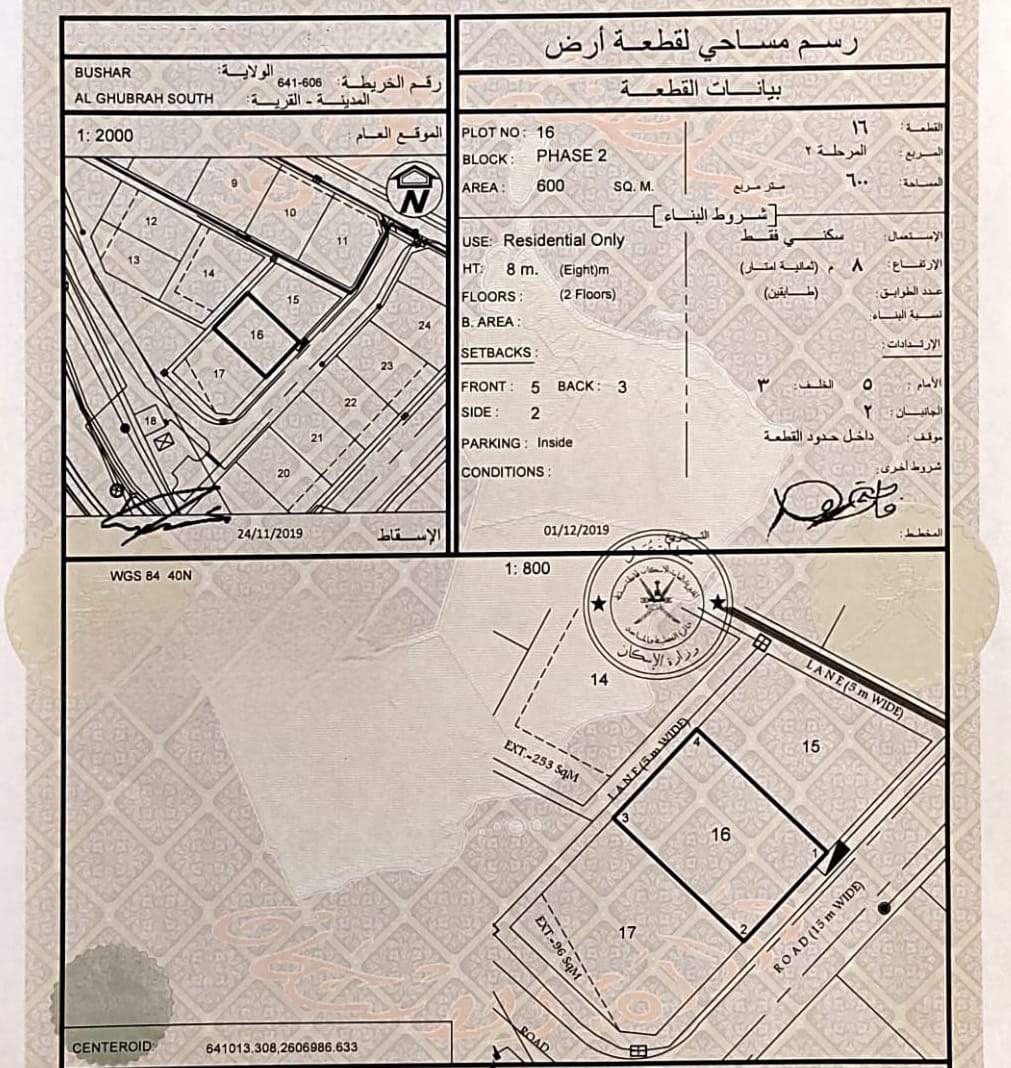 رسم مساحي لقطعة أرض
بيانات القطعة
BUSHAR الولاية:
رقم الخريطة: 641-606
AL GHUBRAH SOUTH المدينة - القرية:
1: 2000 الموقع العام:
9
10
11
12
13
14
15
16
17
18
20
21
22
23
24
N
24/11/2019 الإسقاط
PLOT NO: 16 القطعة: ١٦
BLOCK: PHASE 2 المربع: المرحلة ٢
AREA: 600 SQ. M. المساحة: ٦٠٠ متر مربع
[شروط البناء]
USE: Residential Only الإستعمال: سكني فقط
HT: 8 m. (Eight)m الارتفاع: ٨ م (ثمانية امتار)
FLOORS: (2 Floors) عدد الطوابق: (طابقين)
B. AREA: نسبة البناء:
SETBACKS: الإرتدادات:
FRONT: 5 BACK: 3 الأمام: ٥ الخلف: ٣
SIDE: 2 الجانبان: ٢
PARKING: Inside موقف: داخل حدود القطعة
CONDITIONS: شروط أخرى:
01/12/2019 التاريخ المخطط:
WGS 84 40N
1: 800
سلطنة عمان
وزارة الإسكان
14
EXT.=253 SqM
LANE (5 m WIDE)
LANE (5 m WIDE)
15
4
3
16
1
2
17
EXT.=96 SqM
ROAD (15 m WIDE)
ROAD
CENTEROID: 641013.308,2606986.633